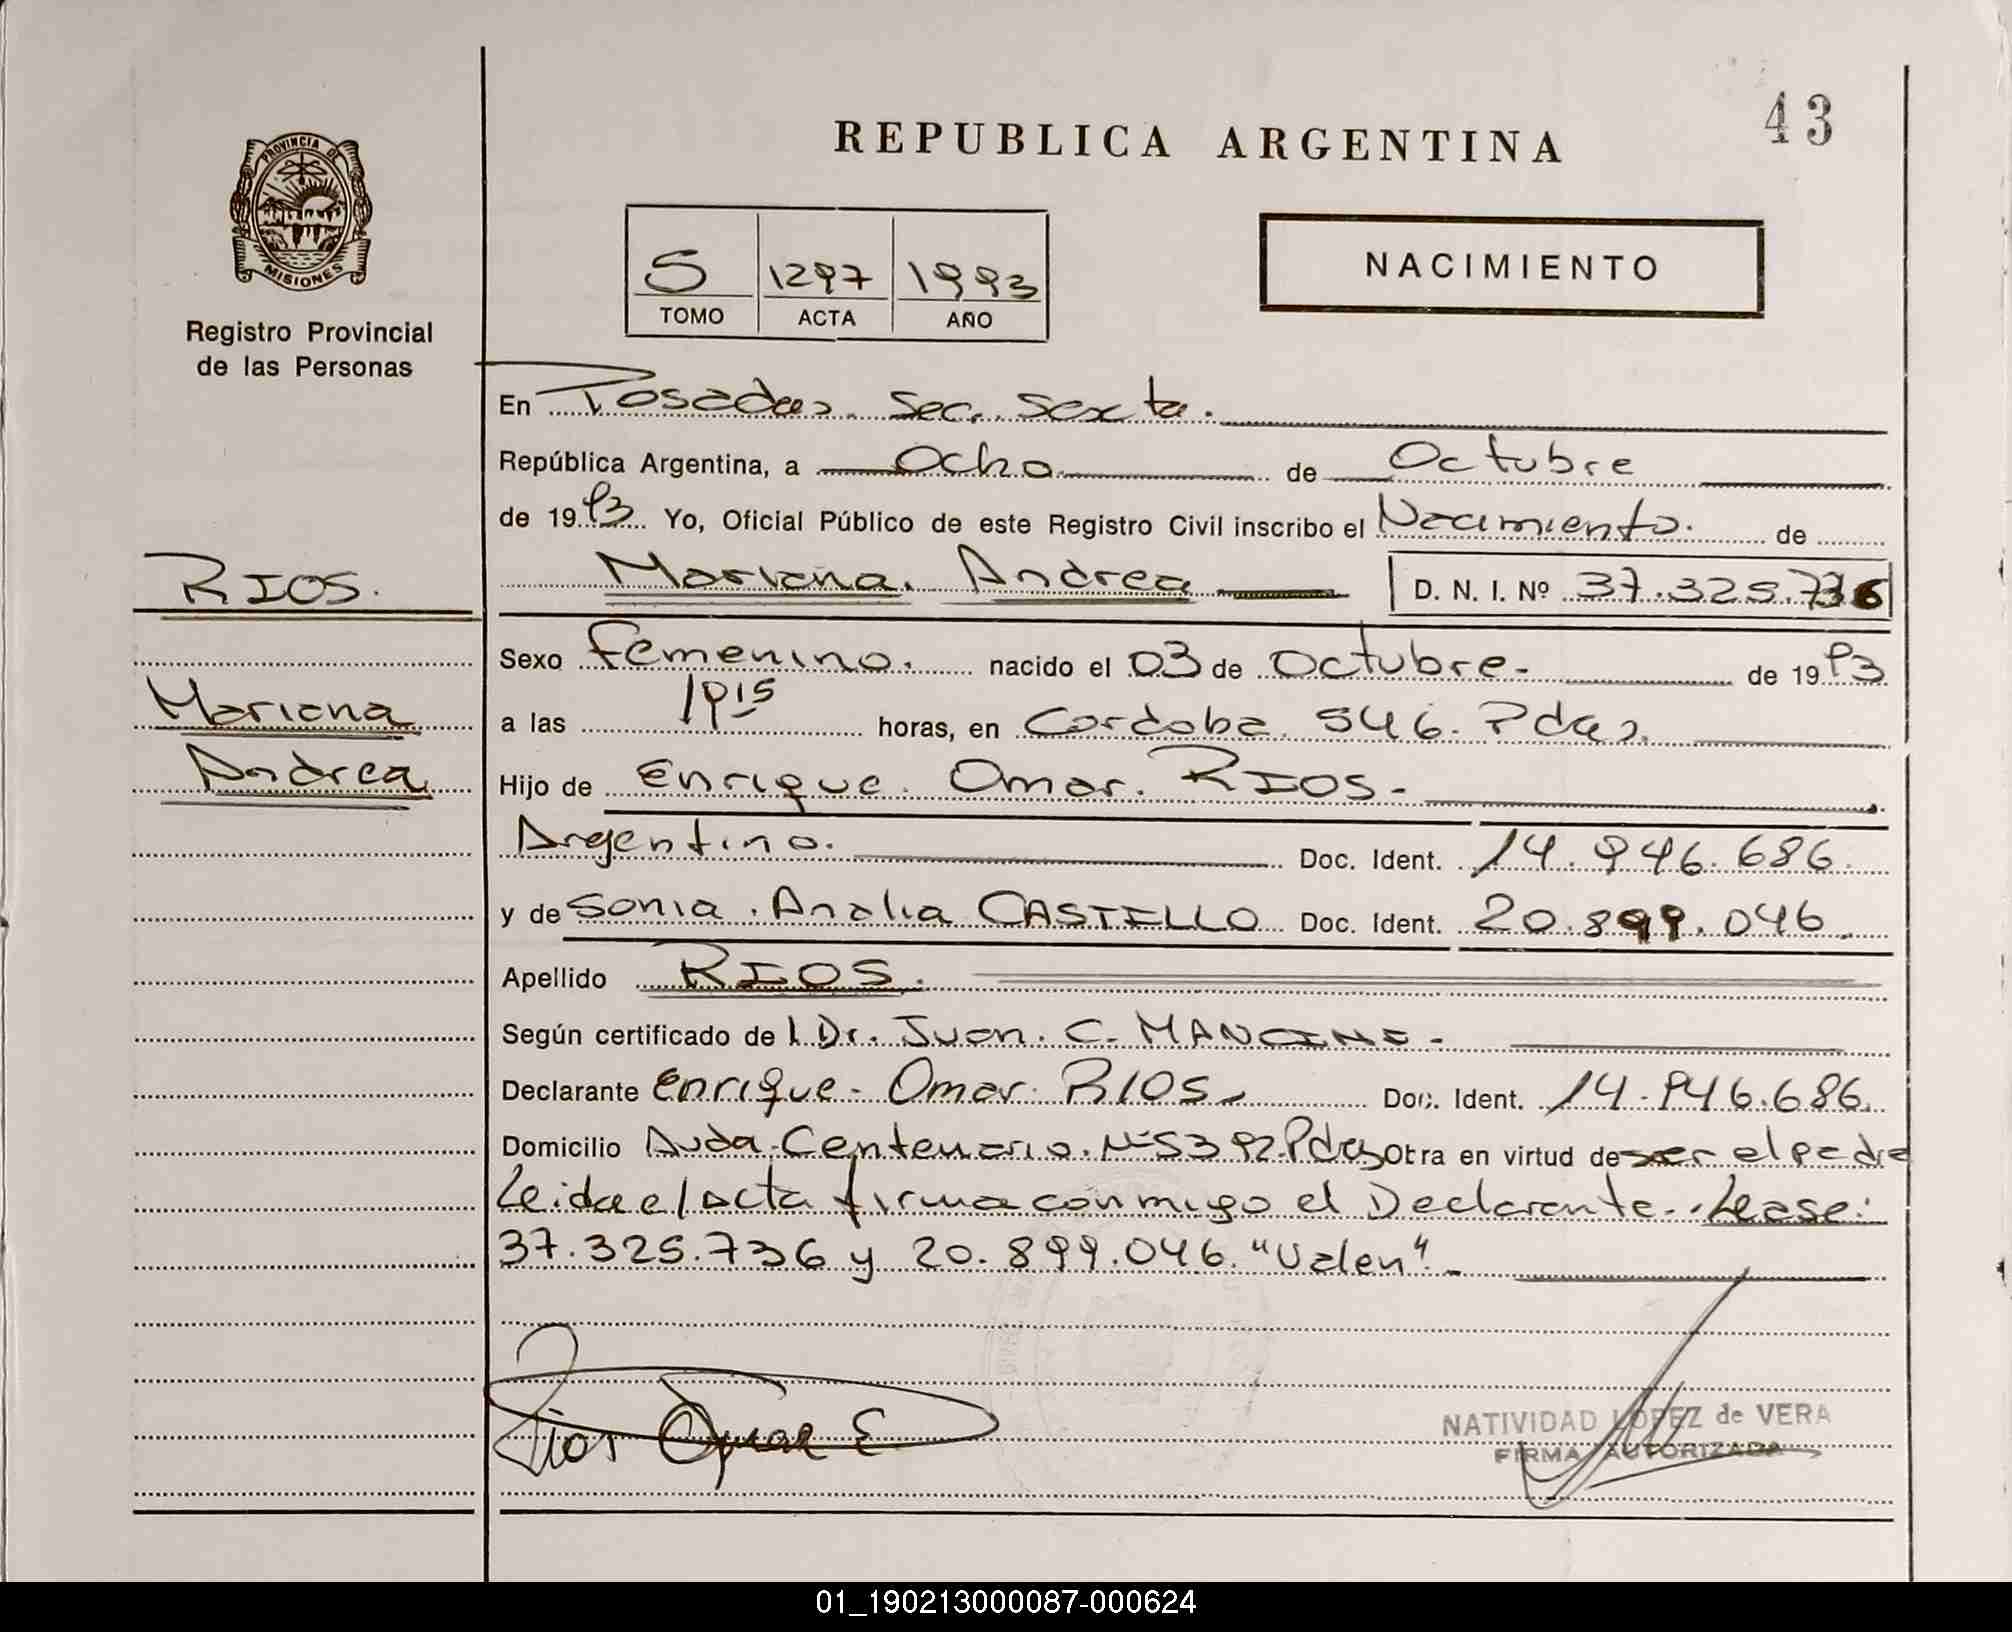 43
REPUBLICA ARGENTINA
PROVINCIA DE
MISIONES
Registro Provincial
de las Personas
5 1297 1993
TOMO ACTA AÑO
NACIMIENTO
En Posadas. Sec. Sexta.
República Argentina, a Ocho de Octubre
de 1993 Yo, Oficial Público de este Registro Civil inscribo el Nacimiento. de
RIOS.
Mariana. Andrea D. N. I. Nº 37.325.736
Sexo Femenino. nacido el 03 de Octubre. de 1993
Mariana
Andrea
a las 19:15 horas, en Cordoba. 546. Pdas.
Hijo de Enrique. Omar. RIOS.
Argentino. Doc. Ident. 14.946.686.
y de Sonia. Analia CASTELLO Doc. Ident. 20.899.046.
Apellido RIOS.
Según certificado de l Dr. Juan. C.
Declarante Enrique. Omar. RIOS. Doc. Ident. 14.946.686.
Domicilio Avda. Centenario. Nº 5392. Pdas Obra en virtud de ser el padre
Leida el acta firma conmigo el Declarante. Lease:
37.325.736 y 20.899.046. "Valen".
Rios Omar E
NATIVIDAD LOPEZ de VERA
FIRMA AUTORIZADA
01_190213000087-000624